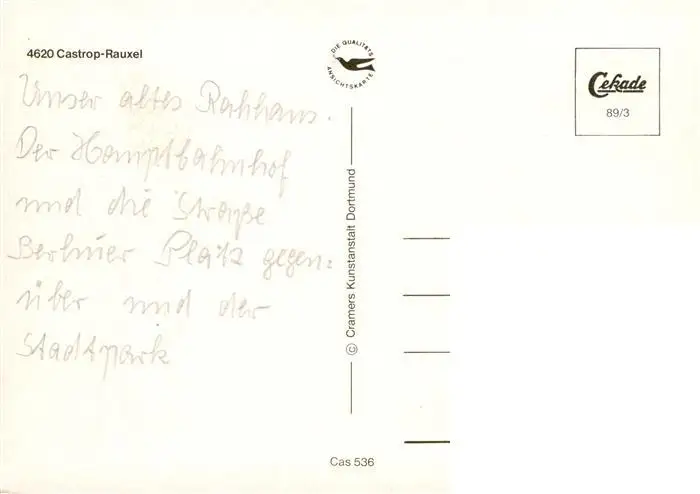 4620 Castrop-Rauxel
Unser altes Rathaus.
Der Hauptbahnhof
und die Straße
Berliner Platz gegen=
über und der
Stadtpark
DIE QUALITÄTS
ANSICHTSKARTE
© Cramers Kunstanstalt Dortmund
Cekade
89/3
Cas 536